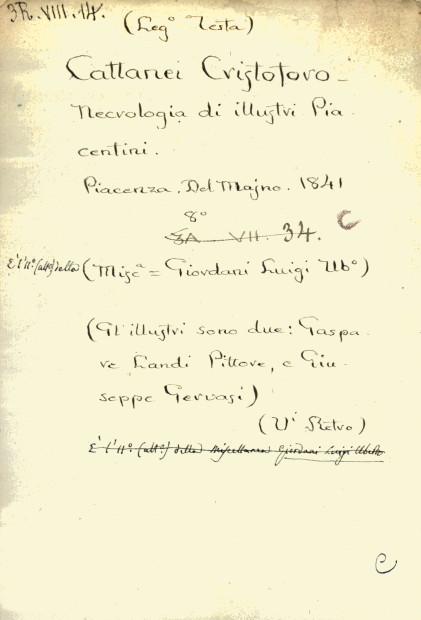 3R. VIII. 14.
(Legº Testa)
Cattanei Cristoforo -
Necrologia di illustri Pia-
centini.
Piacenza, Del Majno. 1841
8º
3A VII. 34. C
E' l' 11º (ult.º) della (Miscª = Giordani Luigi Ubº)
(Gl' illustri sono due: Gaspa-
re Landi Pittore, e Giu-
seppe Gervasi)
(Vi Retro)
E' l' 11º. (ult.º) della Miscellanea Giordani Luigi Uberto
C